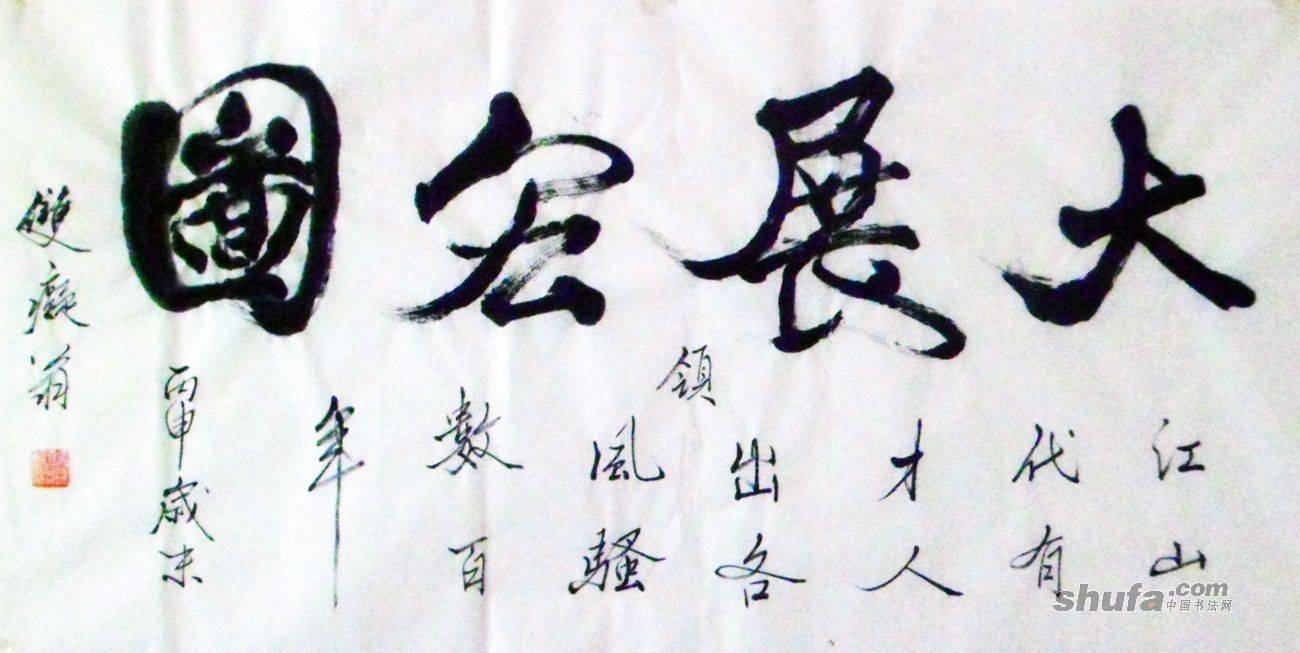 大展宏圖
江山
代有
才人
出各
領
風騷
數百
年
丙申歲末
雙癡翁
shufa.com
中国书法网